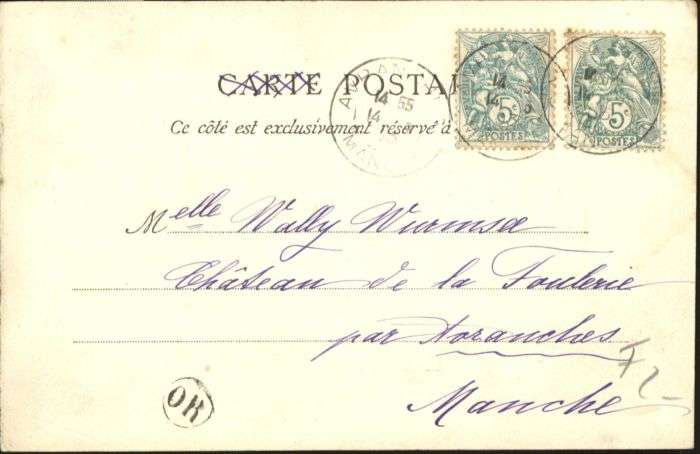 CARTE POSTAL
Ce côté est exclusivement réservé à
AVRANCHES
14 55
14
MAN
5c
POSTES
5c
POSTES
Melle Wally Wurmse
Château de la Foulerie
par Avranches
Manche
OR